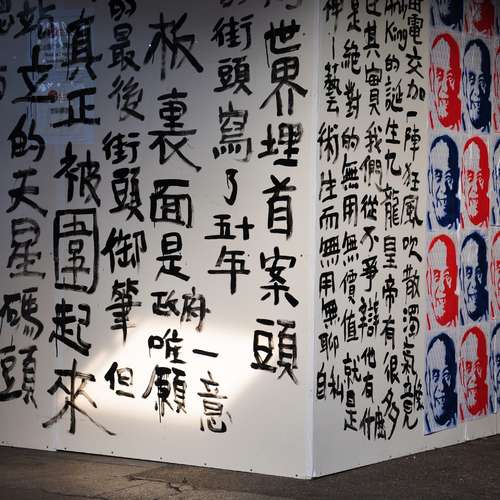 雷電交加一陣狂風吹散濁氣
King的誕生九龍皇帝有很多
且其實我們從不爭辯他有什麼
是絕對的無用無價值就是
神一藝術生而無用無聊自私
世界埋首案頭
的街頭寫了五十年一意
板裏面是政府唯願
的最後街頭御筆但
真正被圍起來
站立的天星碼頭